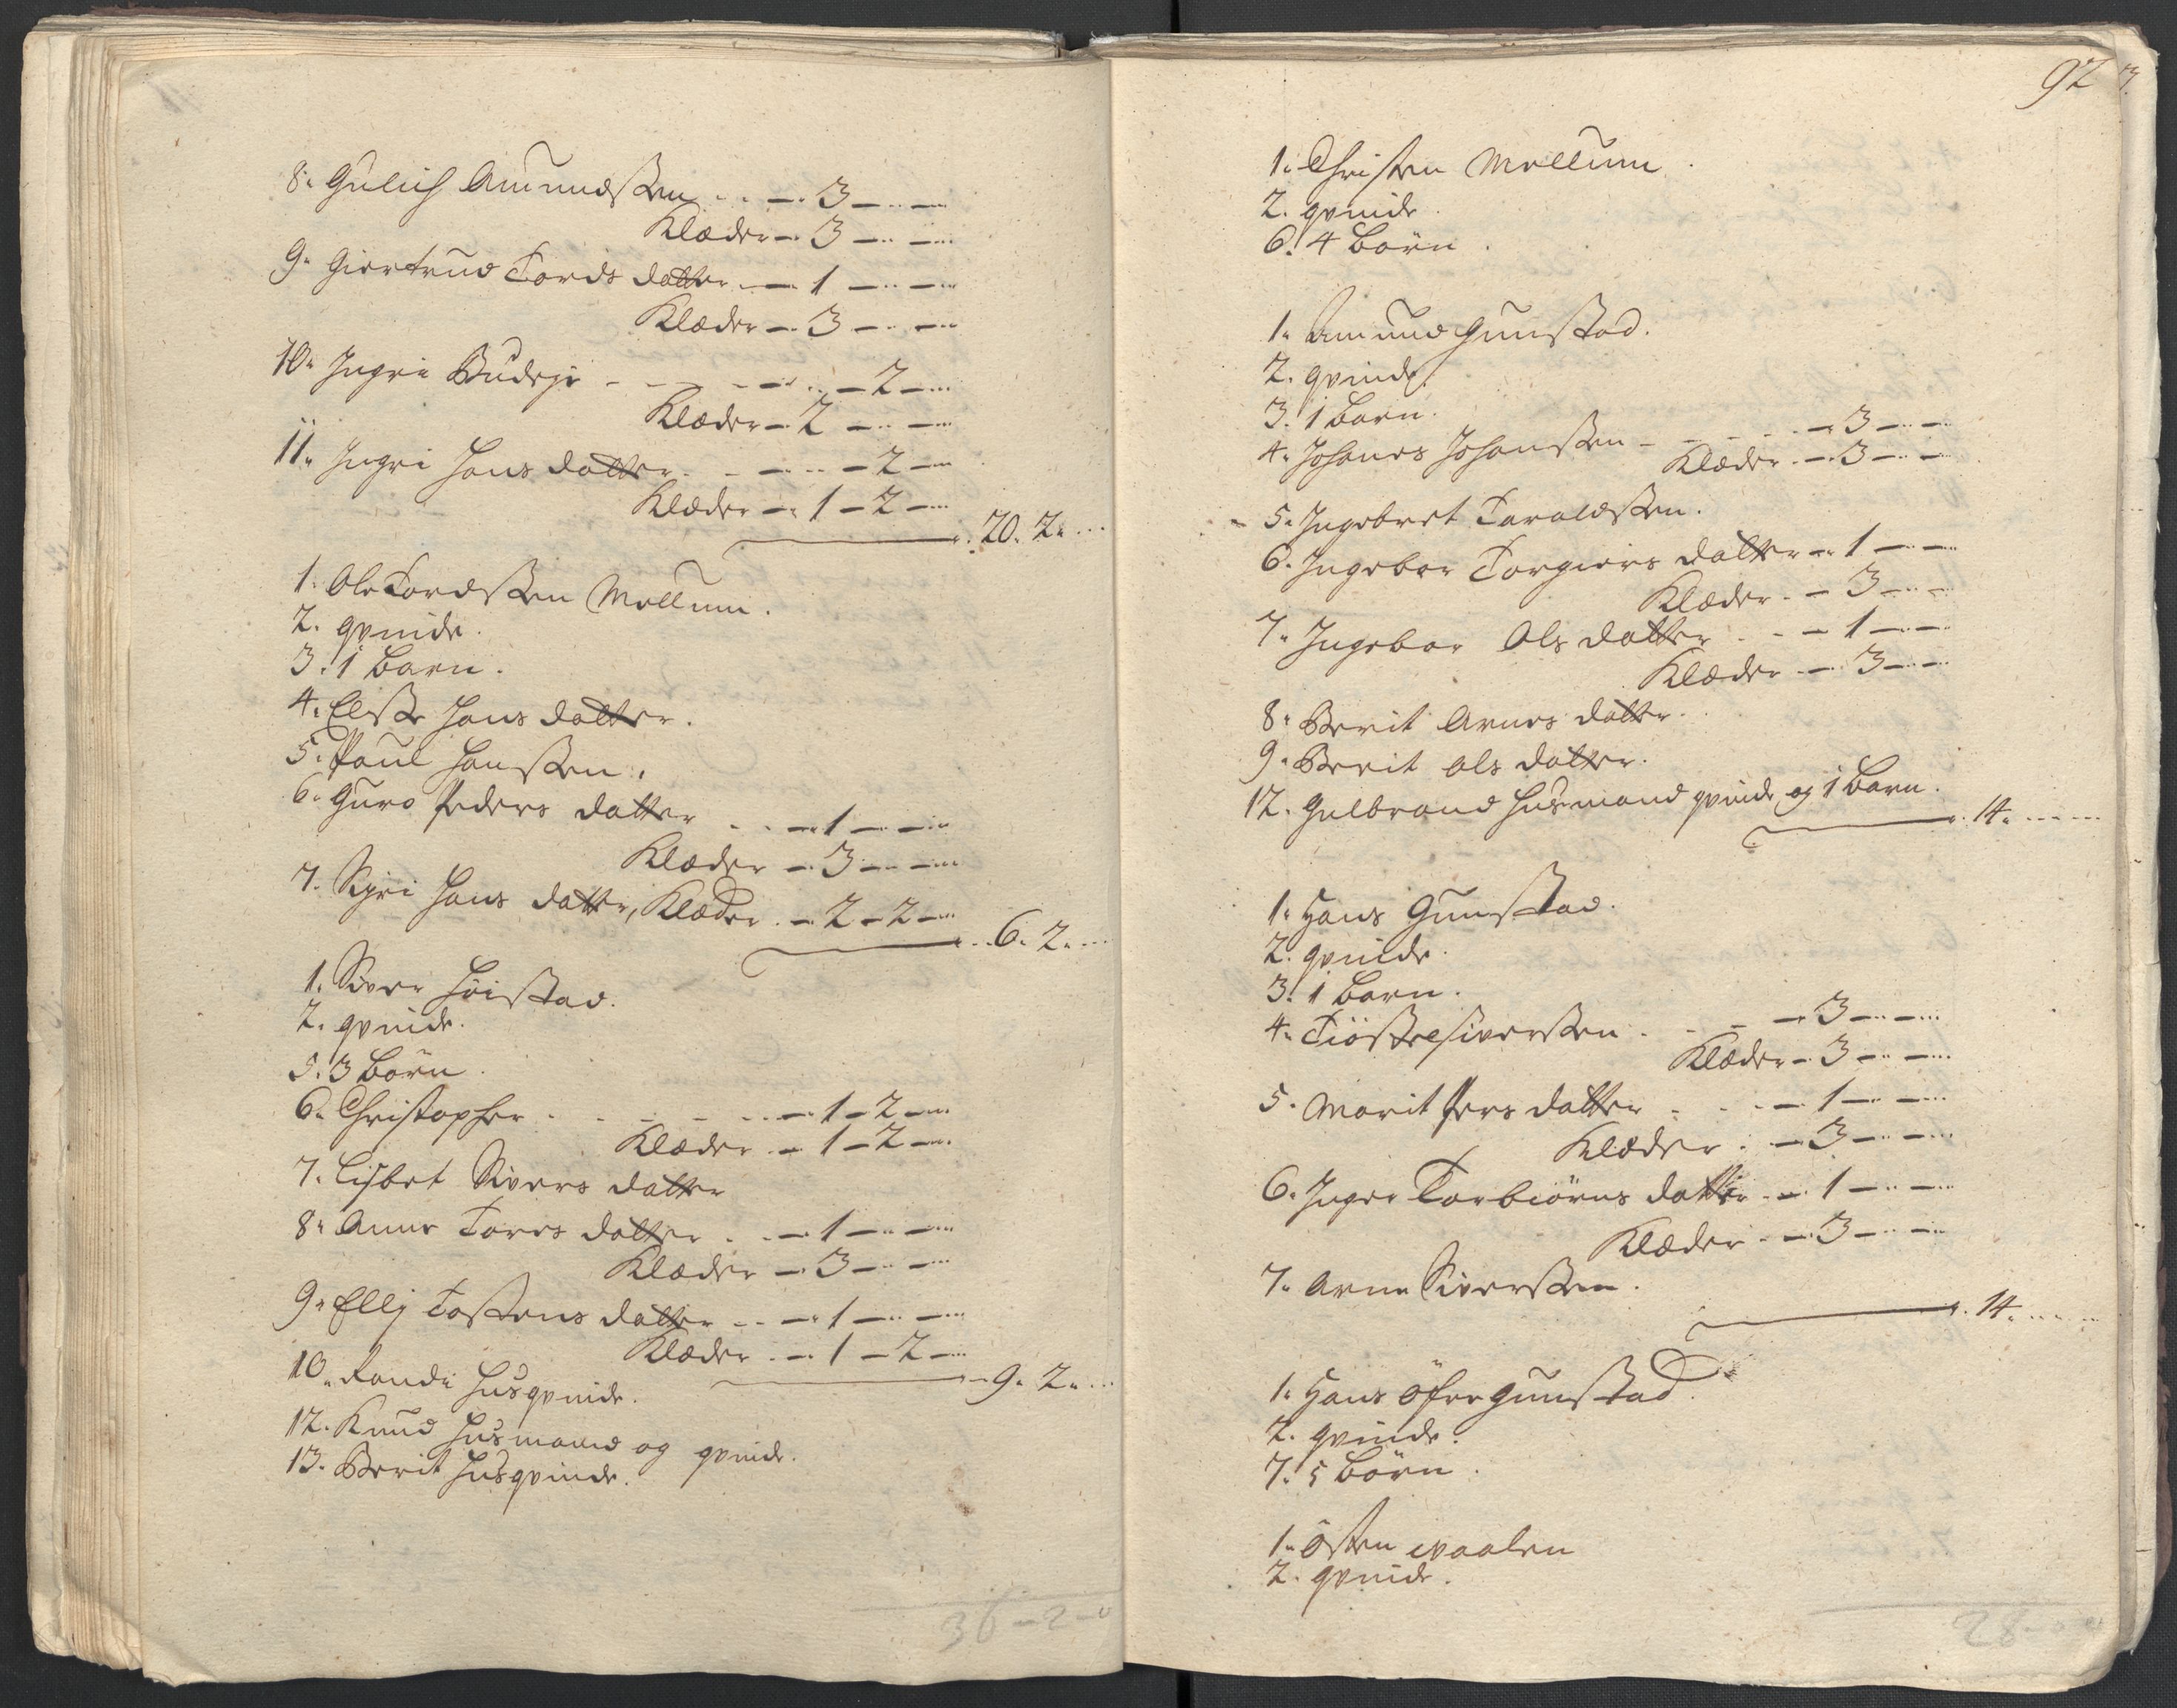 8. Gulich Amundssen - - - 3 - -
Klæder - 3 - -
9. Giertrud Tords datter - 1 - -
Klæder - 3 - -
10. Ingri Budeje - - - - 2 -
Klæder - 2 - -
11. Ingri Hans datter - - - 2 -
Klæder - 1 - 2 -
20. 2. ...
1. Ole Tordssen Mellum.
2. qvinde.
3. 1 barn.
4. Elsse Hans datter.
5. Paul Hanssen.
6. Guro Peders datter - - 1 - -
Klæder - 3 - -
7. Sijri Hans datter, Klæder - 2 - 2 -
6. 2. ...
1. Siver Höistad.
2. qvinde.
5. 3 börn.
6. Christopher - - - - 1 - 2 -
Klæder - 1 - 2 -
7. Lisbet Sivers datter
8. Anne Tores datter - - 1 - -
Klæder - 3 - -
9. Ellj Tostens datter - - 1 - -
Klæder - 1 - 2 -
9. 2. ...
10. Randi Husqvinde.
12. Knud Husmand og qvinde.
13. Berit Husqvinde.
36 - 2 - 0
92
1. Christen Mellum.
2. qvinde.
6. 4 börn.
1. Amund Gunstad.
2. qvinde.
3. 1 barn.
4. Johanes Johanssen - - - 3 - -
Klæder - 3 - -
5. Ingebret Taraldssen.
6. Ingebor Torgiers datter - 1 - -
Klæder - 3 - -
7. Ingebor Ols datter - - 1 - -
Klæder - 3 - -
8. Berit Arnes datter.
9. Berit Ols datter.
12. Gulbrand Husmand qvinde og 1 barn.
14. ...
1. Hans Gunstad.
2. qvinde.
3. 1 barn.
4. Tiöstel Siverssen - - - 3 - -
Klæder - 3 - -
5. Marit Pers datter - - 1 - -
Klæder - 3 - -
6. Inger Torbiörns datter - 1 - -
Klæder - 3 - -
7. Arne Siverssen.
14. ...
1. Hans öfre Gunstad.
2. qvinde.
7. 5 börn.
1. Östen
2. qvinde.
28 - 0 - 0